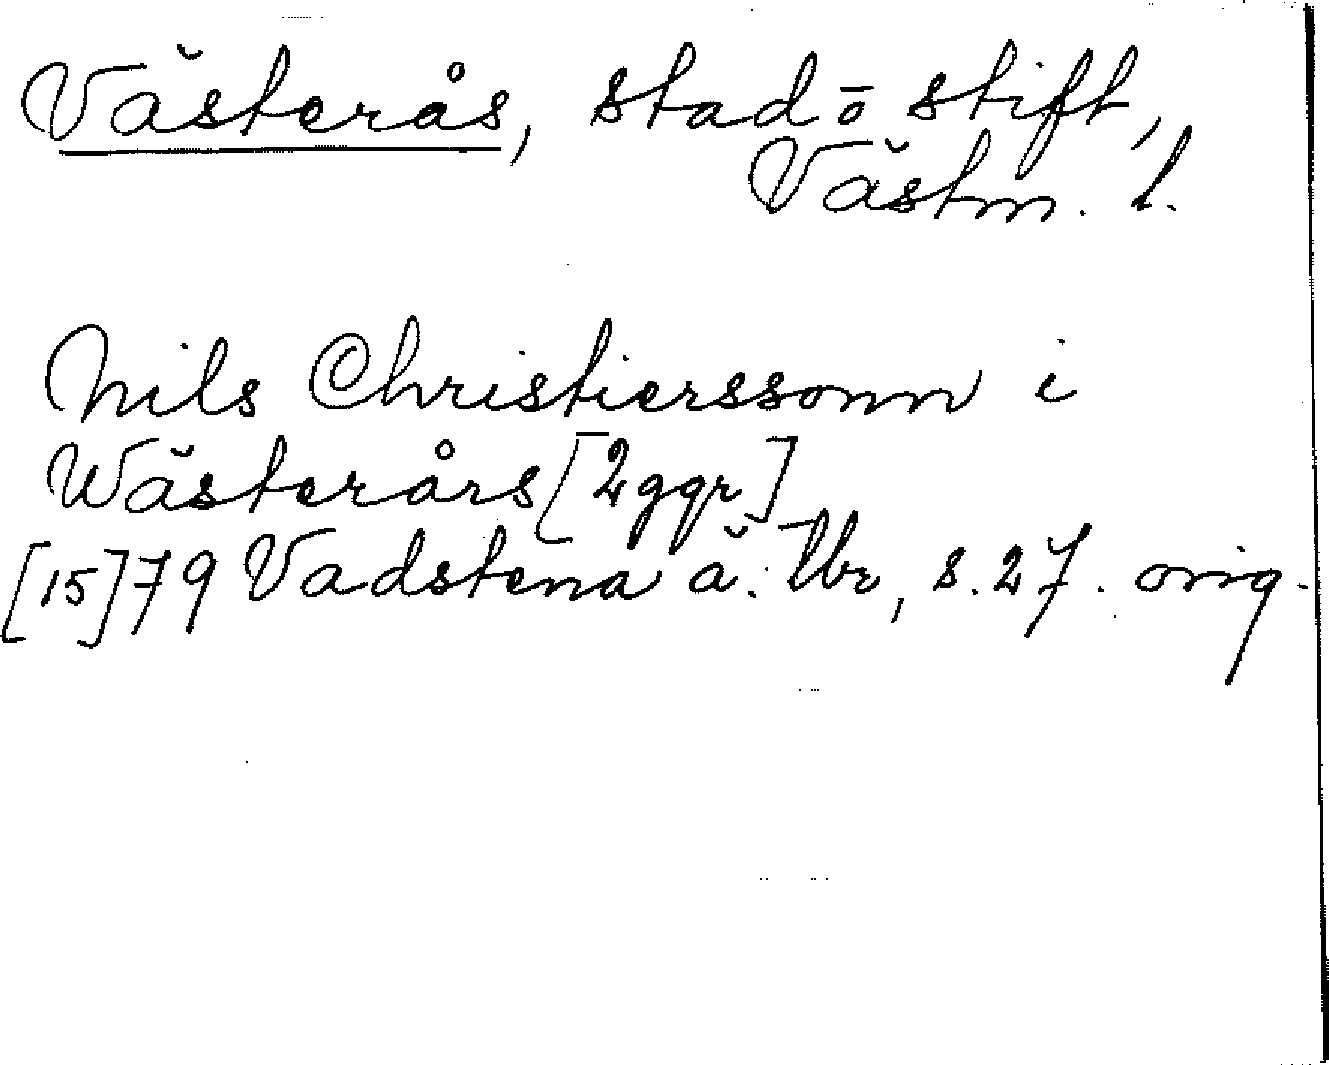 Västerås, stad o stift,
Västm. l.
Nils Christierssonn i
Wästerårs [2 ggr]
[15]79 Vadstena ä. Tbr, s. 27. orig.